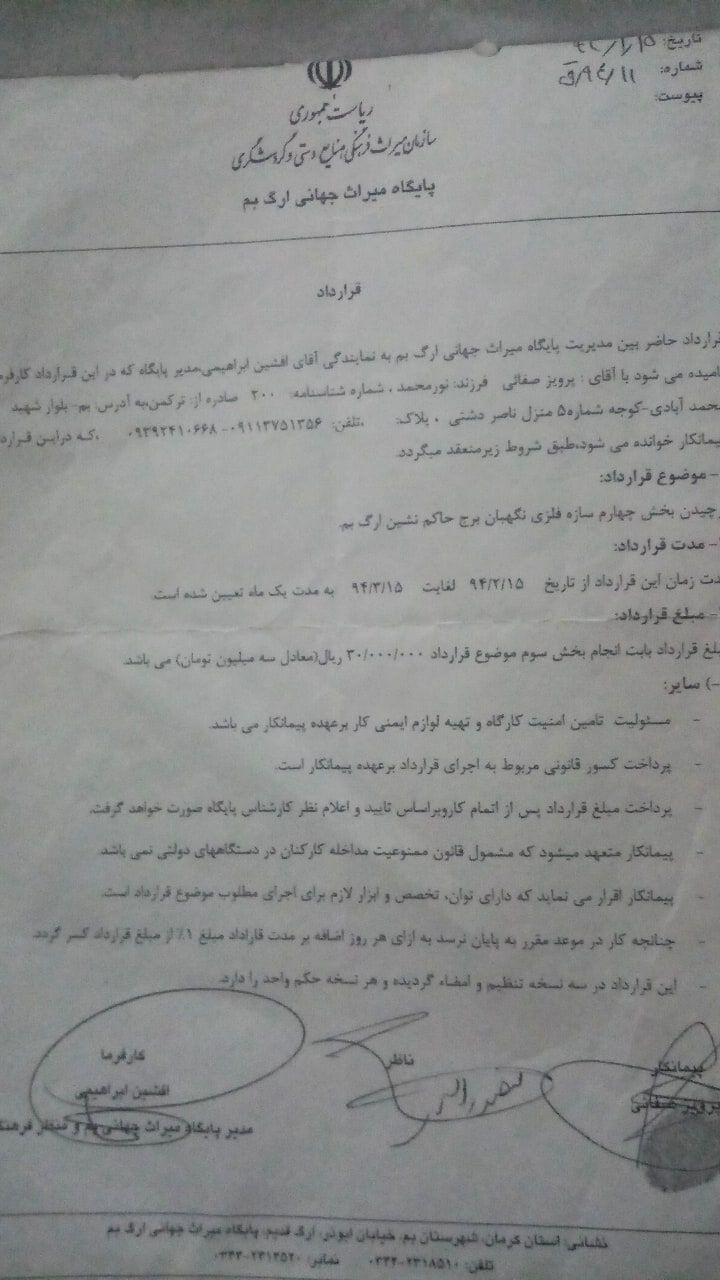 تاریخ:
شماره: ۹۴/۱۱/ق
پیوست:
ریاست جمهوری
سازمان میراث فرهنگی، صنایع دستی و گردشگری
پایگاه میراث جهانی ارگ بم
قرارداد
قرارداد حاضر بین مدیریت پایگاه میراث جهانی ارگ بم به نمایندگی آقای افشین ابراهیمی،مدیر پایگاه که در این قرارداد کارفرما
نامیده می شود با آقای : پرویز صفائی فرزند: نورمحمد ، شماره شناسنامه: ۲۰۰ صادره از: ترکمن،به آدرس: بم- بلوار شهید
محمد آبادی-کوجه شماره۵ منزل ناصر دشتی ، پلاک: ،تلفن: ۰۹۱۱۳۷۵۱۳۵۶- ۰۹۳۹۲۴۱۰۶۶۸ ،که دراین قرارداد
پیمانکار خوانده می شود،طبق شروط زیرمنعقد میگردد.
- موضوع قرارداد:
برچیدن بخش چهارم سازه فلزی نگهبان برج حاکم نشین ارگ بم.
- مدت قرارداد:
مدت زمان این قرارداد از تاریخ ۹۴/۲/۱۵ لغایت ۹۴/۳/۱۵ به مدت یک ماه تعیین شده است.
- مبلغ قرارداد:
مبلغ قرارداد بابت انجام بخش سوم موضوع قرارداد ۳۰/۰۰۰/۰۰۰ ریال(معادل سه میلیون تومان) می باشد.
-) سایر:
- مسئولیت تامین امنیت کارگاه و تهیه لوازم ایمنی کار برعهده پیمانکار می باشد.
- پرداخت کسور قانونی مربوط به اجرای قرارداد برعهده پیمانکار است.
- پرداخت مبلغ قرارداد پس از اتمام کاروبراساس تایید و اعلام نظر کارشناس پایگاه صورت خواهد گرفت.
- پیمانکار متعهد میشود که مشمول قانون ممنوعیت مداخله کارکنان در دستگاههای دولتی نمی باشد.
- پیمانکار اقرار می نماید که دارای توان، تخصص و ابزار لازم برای اجرای مطلوب موضوع قرارداد است.
- چنانچه کار در موعد مقرر به پایان نرسد به ازای هر روز اضافه بر مدت قاراداد مبلغ ۱٪ از مبلغ قرارداد کسر گردد.
- این قرارداد در سه نسخه تنظیم و امضاء گردیده و هر نسخه حکم واحد را دارد.
پیمانکار ناظر کارفرما
پرویز صفائی افشین ابراهیمی
مدیر پایگاه میراث جهانی بم و منظر فرهنگی
نشانی: استان کرمان، شهرستان بم، خیابان ابوذر، ارگ قدیم، پایگاه میراث جهانی ارگ بم
تلفن: ۲۳۱۸۵۱۰-۰۳۴۴ نمابر: ۲۳۱۳۵۲۰-۰۳۴۴